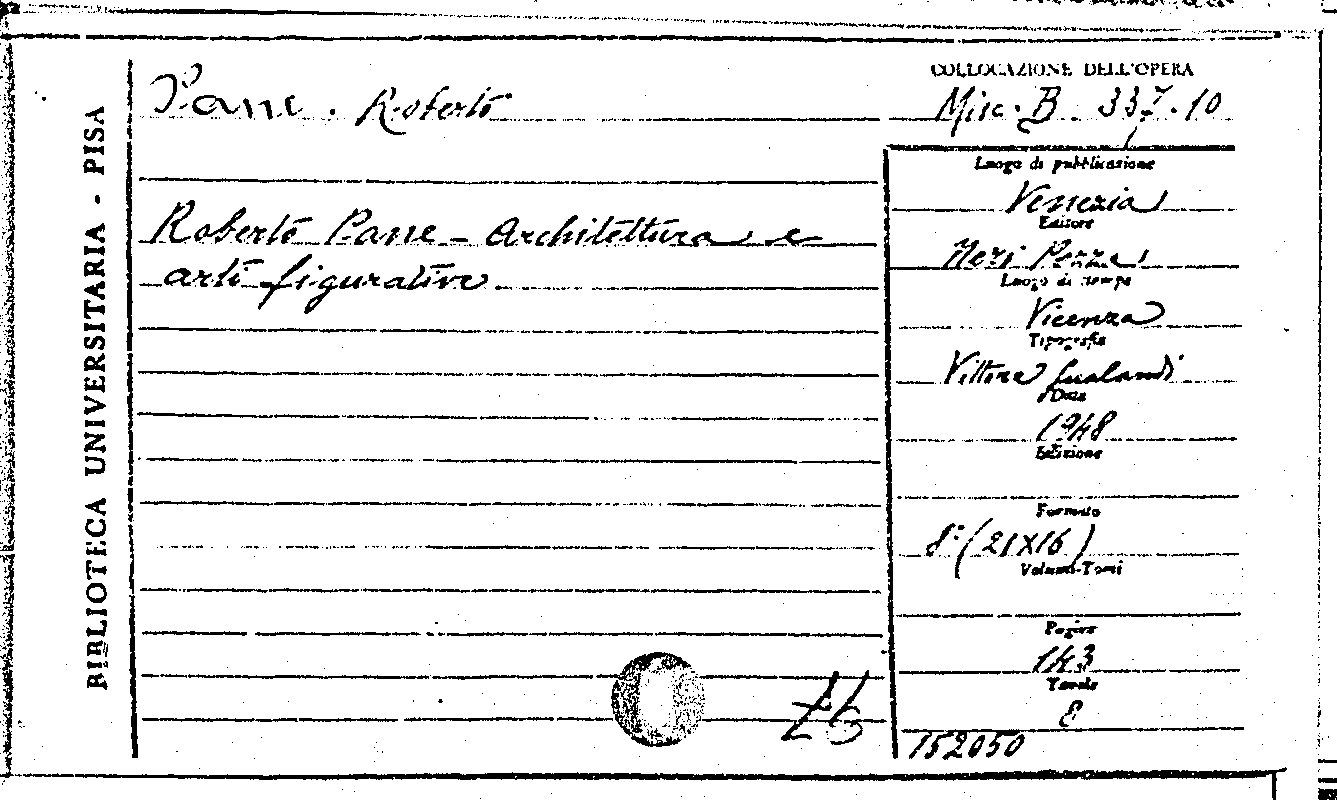 BIBLIOTECA UNIVERSITARIA - PISA
Pane. Roberto
Roberto Pane - Architettura e
arti figurative.
COLLOCAZIONE DELL'OPERA
Misc. B. 337.10
Luogo di pubblicazione
Venezia
Editore
Neri Pozza
Luogo di stampa
Vicenza
Tipografia
Vittore Gualandi
Data
1948
Edizione
Formato
8° (21x16)
Volumi-Tomi
Pagine
143
Tavole
8
152050